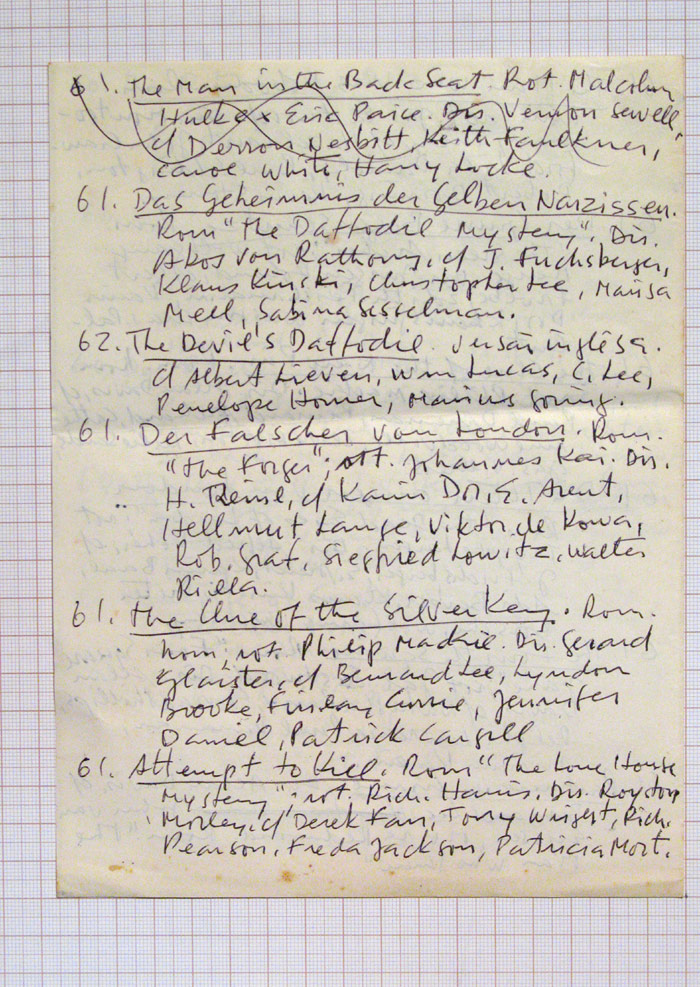 61. The Man in the Back Seat. Rot. Malcolm
Hulke x Eric Paice. Dir. Vernon Sewell,
c/ Derron Nesbitt, Keith Faulkner,
Carole White, Harry Locke.
61. Das Geheimnis der Gelben Narzissen.
Rom "The Daffodil Mystery". Dir.
Akos von Rathony, c/ J. Fuchsberger,
Klaus Kinski, Christopher Lee, Marisa
Mell, Sabina Sesselman.
62. The Devil's Daffodil. versão inglêsa.
c/ Albert Lieven, Wm Lucas, C. Lee,
Penelope Horner, Marius Goring.
61. Der Falscher von London. Rom.
"The Forger"; rot. Johannes Kai. Dir.
H. Reinl, c/ Karin Dor, E. Arent,
Hellmut Lange, Viktor de Kowa,
Rob. Graf, Siegfried Lowitz, Walter
Rilla.
61. The Clue of the Silver Key. Rom.
hom; rot. Philip Mackie. Dir. Gerard
Glaister, c/ Bernard Lee, Lyndon
Brooke, Finlay Currie, Jennifer
Daniel, Patrick Cargill
61. Attempt to Kill. Rom "The Lone House
Mystery"; rot. Rich. Harris. Dir. Royston
Morley, c/ Derek Farr, Tony Wright, Rich.
Pearson, Freda Jackson, Patricia Mort.